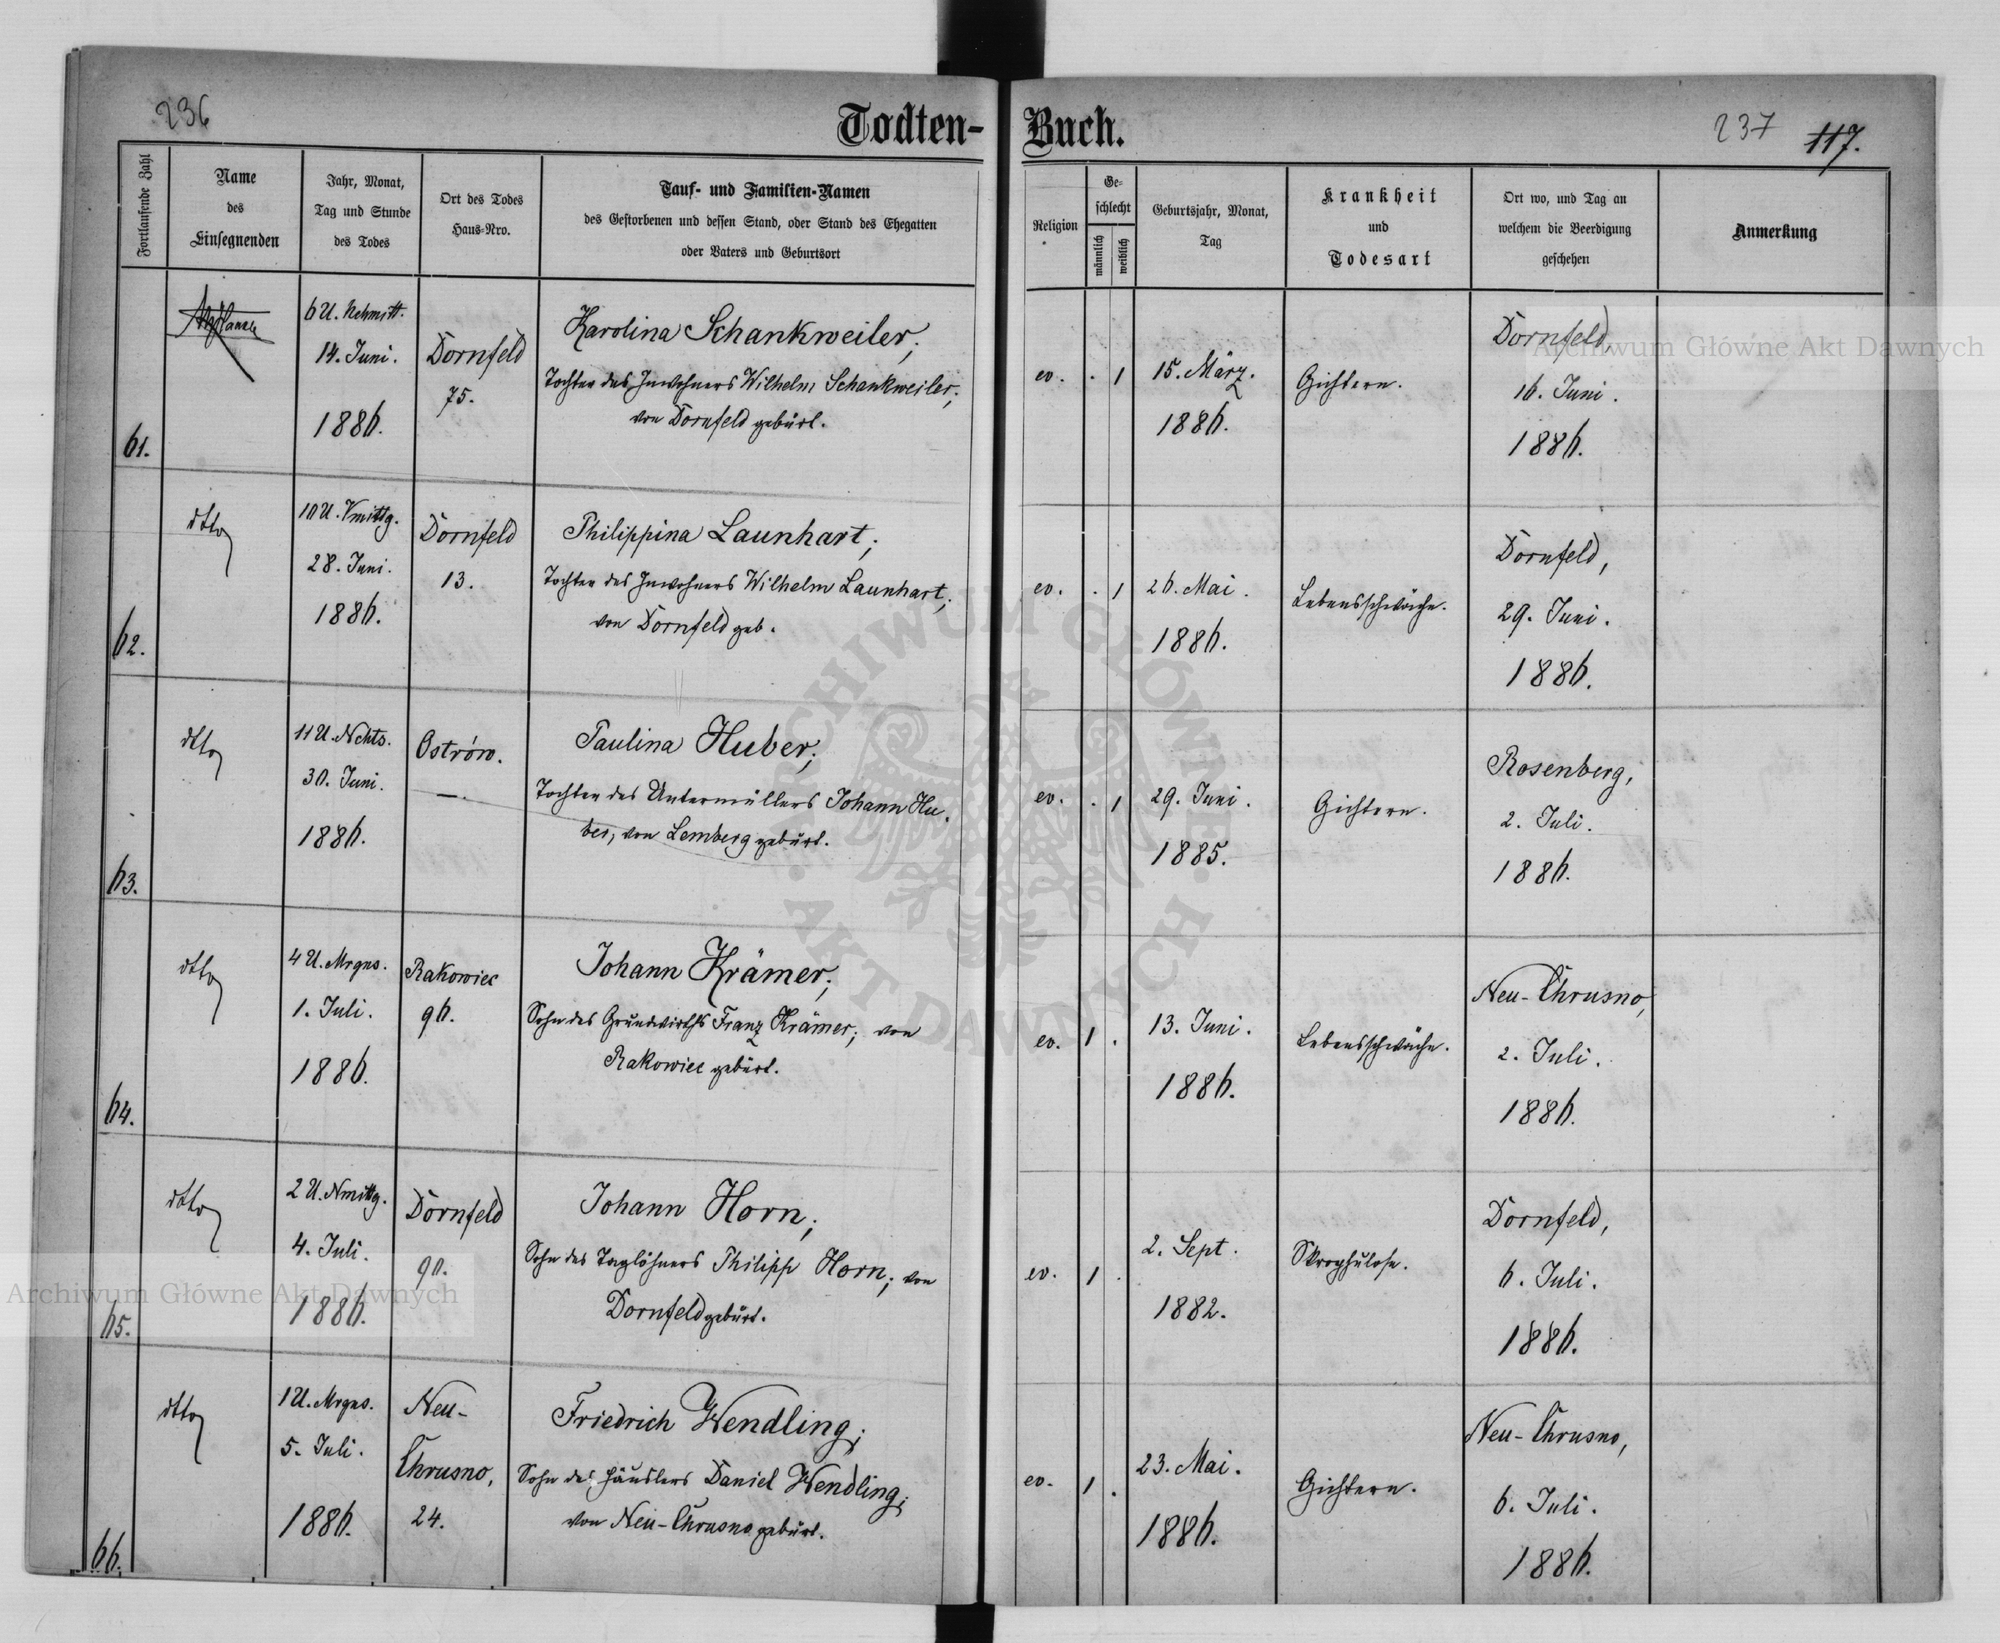 236
Todten-
Buch.
237 117.
Fortlaufende Zahl
Name
des
Einsegnenden
Jahr, Monat,
Tag und Stunde
des Todes
Ort des Todes
Haus-Nro.
Tauf- und Familien-Namen
des Gestorbenen und dessen Stand, oder Stand des Ehegatten
oder Vaters und Geburtsort
Religion
Ge-
schlecht
männlich
weiblich
Geburtsjahr, Monat,
Tag
Krankheit
und
Todesart
Ort wo, und Tag an
welchem die Beerdigung
geschehen
Anmerkung
61.
6 U. Nchmitt.
14. Juni.
1886.
Dornfeld
75.
Karolina Schankweiler;
Tochter des Inwohners Wilhelm Schankweiler;
von Dornfeld gebürt.
ev. . 1
15. März.
1886.
Gichtern.
Dornfeld,
16. Juni.
1886.
62.
dtto
10 U. Vmittg.
28. Juni.
1886.
Dornfeld
13.
Philippina Launhart;
Tochter des Inwohners Wilhelm Launhart;
von Dornfeld geb.
ev. . 1
26. Mai.
1886.
Lebensschwäche.
Dornfeld,
29. Juni.
1886.
63.
dtto
11 U. Nchts.
30. Juni.
1886.
Ostrów.
—.
Paulina Huber;
Tochter des Untermüllers Johann Hu-
ber, von Lemberg gebürt.
ev. . 1
29. Juni.
1885.
Gichtern.
Rosenberg,
2. Juli.
1886.
64.
dtto
4 U. Mrgns.
1. Juli.
1886.
Rakowiec
96.
Johann Krämer;
Sohn des Grundwirths Franz Krämer; von
Rakowiec gebürt.
ev. 1 .
13. Juni.
1886.
Lebensschwäche.
Neu-Chrusno,
2. Juli.
1886.
65.
dtto
2 U. Nmittg.
4. Juli.
1886.
Dornfeld
90.
Johann Horn;
Sohn des Taglöhners Philipp Horn; von
Dornfeld gebürt.
ev. 1 .
2. Sept.
1882.
Skrophulose.
Dornfeld,
6. Juli.
1886.
66.
dtto
1 U. Mrgns.
5. Juli.
1886.
Neu-
Chrusno,
24.
Friedrich Wendling;
Sohn des Häuslers Daniel Wendling;
von Neu-Chrusno gebürt.
ev. 1 .
23. Mai.
1886.
Gichtern.
Neu-Chrusno,
6. Juli.
1886.
Archiwum Główne Akt Dawnych
Archiwum Główne Akt Dawnych
ARCHIWUM GŁÓWNE
AKT DAWNYCH